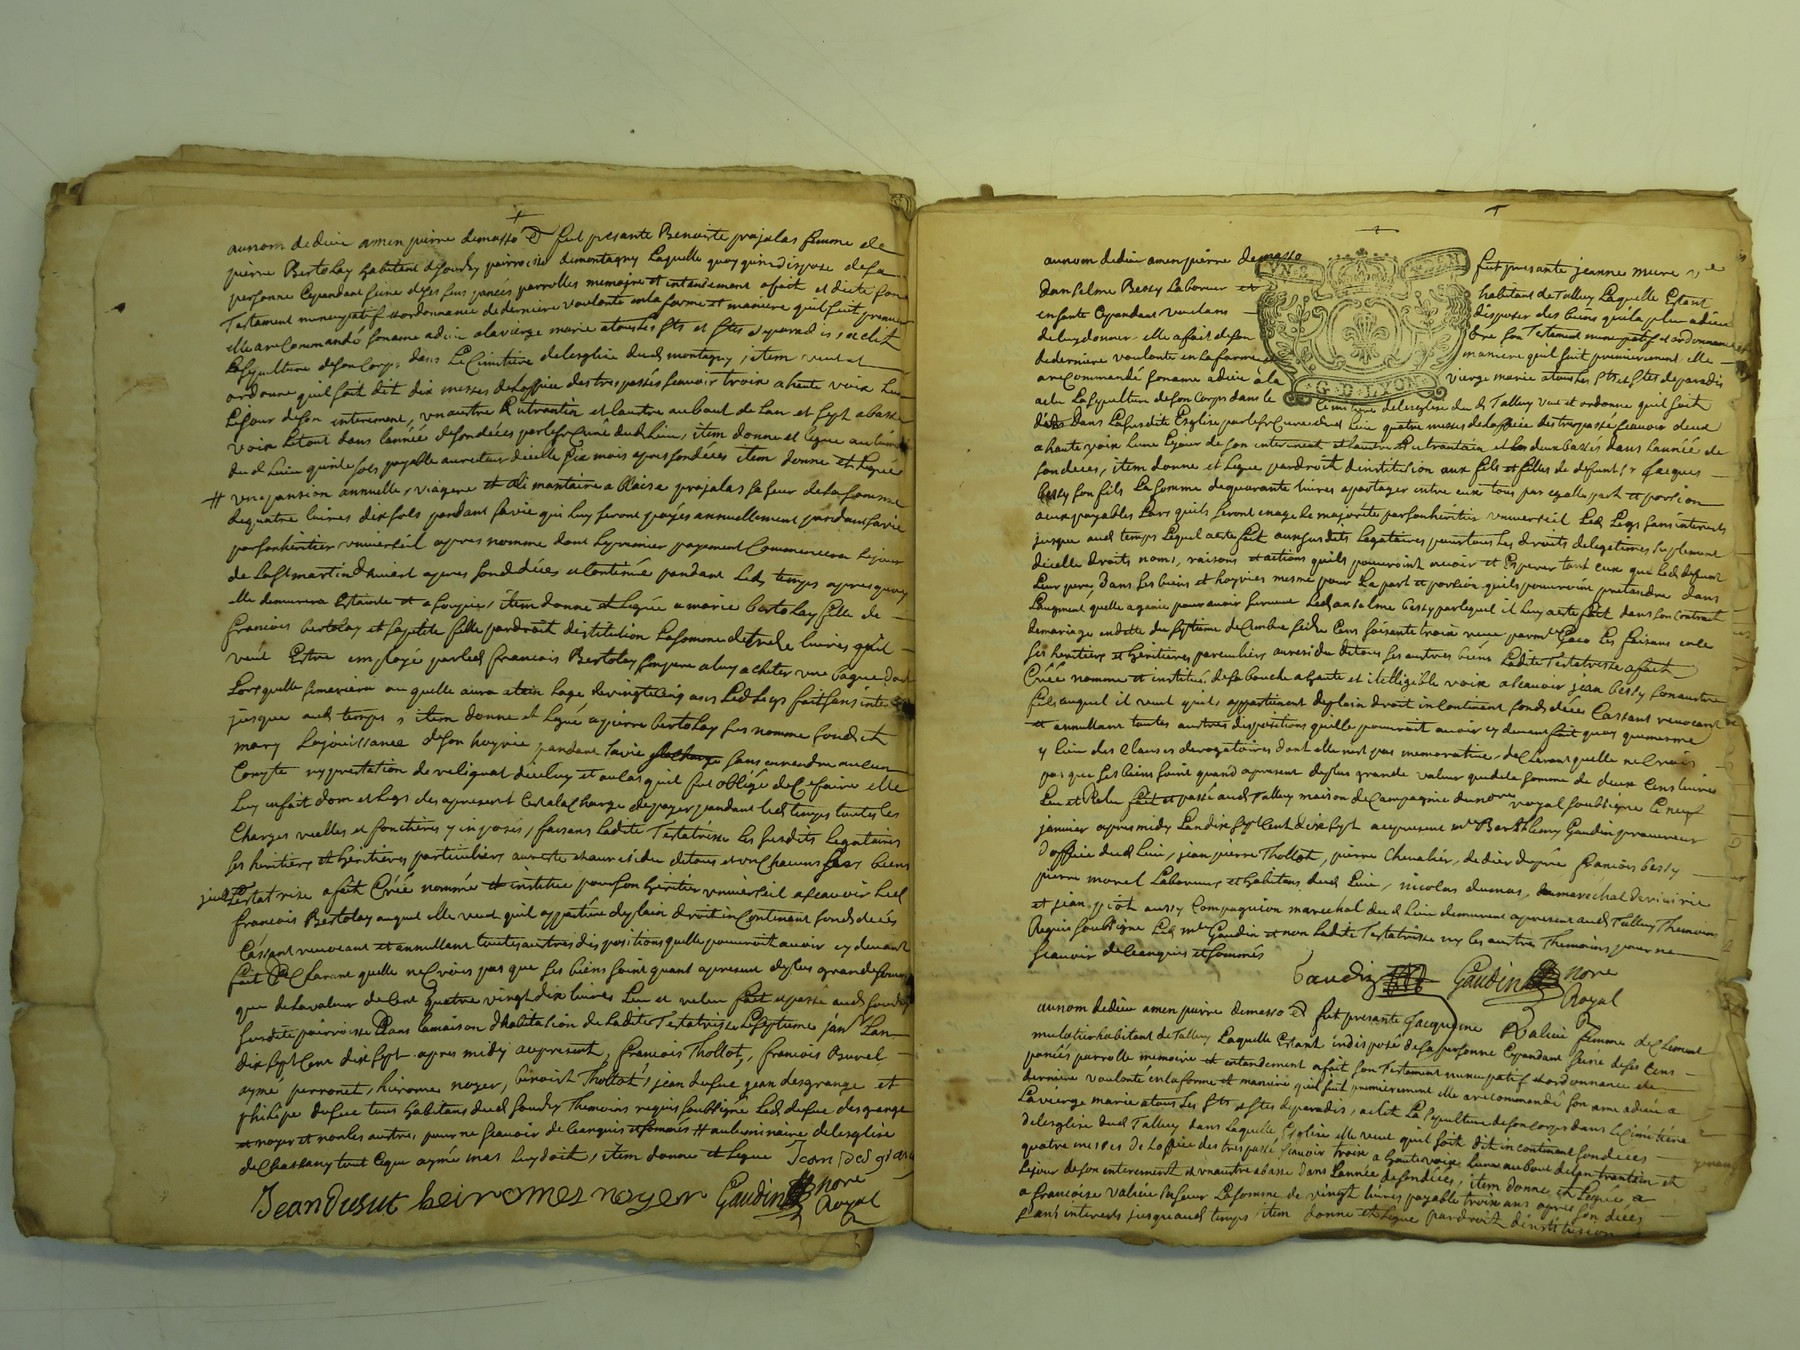 au nom de dieu amen pierre demasso & fut presante Benoiste projalas femme de
pierre Bertolay habitant de soudry parroisse de montagny Laquelle quoy qu'indispose de sa
personne Cependant seine de ses sens pancés parrolles memoire et entendement a fait et dicte son
Testament nuncupatif et ordonnance de derniere voulonté en la forme et maniere quil suit premier
elle a reCommandé son ame a dieu a la vierge marie a tous les sts et stes de paradis, a eslit
La sepulture de son Corps dans Le Cimitière de lesglise dud montagny, item veut et
ordonne quil soit dit dix messes de Loffice des trespassés scavoir troix a haute voix Lune
Le jour de son enterement, un autre Et trantin et lautre au bout de Lan et sept a basse
voix Le tout dans lannée de son décés par le sr Curé dud Lieu, item donne et legue au
dud Lieu quinte sols payable au recteur dicelle six mois apres son décés item donne et Legué
# une pansion annuelle, viagere et alimantaire a Blaise projalas sa seur de la somme
de quatre livres dix sols pandant sa vie qui luy seront payés annuellement pandant sa vie
par son héritier universéil apres nommé dont le premier payement Commencera le jour
de La St martin d'hivert apres son décés et Continué pandant Led temps apres quoy
elle demurera Estainte et assoupie, item donne et Legué a marie bertolay fille de
francois bertolay et sa petite fille par droit dinstitution La somme de treize livres quil
veut Estre employé par led francois Bertolay son pere a luy acheter une bague dor
Lors quelle se mariera ou quelle aura atain Lage de vingt cinq ans Led Legs fait sans interes
jusque aud temps, item donne et Legué a pierre bertolay sus nommé son dit
mary La jouissance de son hoyrie pandant sa vie sans en rendre aucun
Compte ny prestation de reliquat diceluy et au cas quil fut obligé de Ce faire elle
Luy en fait don et Legs des apresent Cest a la Charge de payer pandant led temps toutes les
Charges reelles et foncières y inposés, faisans Ladite Testatrisse les susdits Legataires
ses héritiers et héritieres particuliers au reste et au residu de tous et un Chacuns ses biens
Testatrise a fait Créé nommé et institue pour son héritier universéil a scavoir Led
francois Bertolay auquel elle veut quil appartiene de plain droit inContinant son dd décés
Cassant revocant et annullant toutes autres dispositions quelle pourroit avoir cy devant
fait declarant quelle ne Crois pas que ses biens soint quant apresent de plus grande somme
que de la valeur de Cent quatre vingt dix livres Leu et relu fait et passé aud soudry
susdite parroisse dans la maison d'habitation de Ladite Testatrisse Le septieme janr Lan
dix sept Cent dix sept apres midy au present, francois Thollot, francois Burel
aymé perronet, hiromé noyer, benoist Thollot, jean dusuc jean desgrange et
philipe dusuc tous habitans dud soudry Themoins requis soubsigné Led dusuc desgrange
et noyer et non les autres, pour ne scavoir de Ceanquis et somés # au luminaire de lesglise
de Chassany tout Ceque aymé mas luy doit, item donne et Legue Jean des gran
Jean dusut heiromes noyer Gaudin nore
Royal
au nom de dieu amen pierre demasso
fut presante jeanne mure ve
d'anselme Bessy Laboreur et
habitant de Talluy Laquelle Estant
enfante Cependant voulans
disposer des biens quil a plu a dieu
de luy donner, elle a fait de son
gré son Testament nuncupatif et ordonnance
de derniere voulonté en La forme et
maniere quil suit premierement elle
a reCommandé son ame a dieu à la
vierge marie a tous les sts et stes de paradis
a elu La sepulture de son Corps dans le
Cimitiere de lesglise dud Talluy veut et ordonne quil soit
dans La susdite Esglise par le sr Curé dud Lieu quatre messes de Loffice des trespassé scavoir deux
a haute voix Lune Le jour de son enterement et lautre Et trantain et les deux basses dans Lannéé de
son deces, item donne et Legue par droit dinstitution aux fils et filles de defunt sr jacques
bessy son fils La somme de quarante livres a partager entre eux tous par egalle part et portion
a eux payables Lors quils seront en age de majorité par son heritier universéil Led Legs sans interests
jusque aud temps Lequel a este fait aux susdits Legataires pour tous les droits de legitimes suplement
dicelle droits noms, raisons et actions quils pouroint avoir et Esperer tant eux que Led defunt
Leur pere, dans les biens et hoyries mesme pour La part et portion quils pourroint pretandre dans
Laugment quelle a gagné pour avoir survecu Led anselme bessy par lequel il luy a este fait dans son contract
de mariage en datte du septieme deCembre seize Cens soisante troix receu par me Gaco Les faisans a ce
ses heritiers et heritieres particuliers au residu de tous ses autres biens Ladite Testatrisse a fait
Créé nommé et institué de sa bouche a haute et intelligible voix a scavoir jean bessy son autre
fils auquel il veut quils appartienent de plain droit inContinent son dd déces Cassant revocant
et annullant toutes autres dispositions quelle pourroit avoir cy devant fait quoy que mesme
y heut des Clauses derogatoires dont elle nest pas memorative, deClarant quelle ne Croit
pas que ses biens soint quand apresent de plus grande valeur que de la somme de deux Cens livres
Leu et Relu fait et passé aud Talluy maison de Campagnie du nore royal soubsigné le neuf
janvier apres midy Lan dix sept Cent dix sept au present me Barthlemy Gaudin procureur
d'office dud Lieu, jean pierre Thollot, pierre Chevalier, dedier dupré francois bessy
pierre morel Laboreurs et habitans dud Lieu, nicolas dumas, marechal de riverie
et jean piot aussy Compagnion marechal dud Lieu demurant apresent aud Talluy Themoins
Requis soubsigne Led me Gaudin et non Ladite Testatrisse ny les autres Themoins pour ne
scavoir de Ceanquis et sommés
Gaudin Gaudin nore
Royal
au nom de dieu amen pierre demasso & fut presante jacquesme valieu femme de Clement
mulatier habitant de Talluy Laquelle Estant indisposé de sa personne Cependant seine de ses Cens
pancés parrolle memoire et entendement a fait son Testament nuncupatif et ordonnance de
derniere voulonté en la forme et maniére quil suit premierement elle a recommandé son ame a dieu a
La vierge marie a tous les sts et stes de paradis, a elut La sepulture de son Corps dans le Cimitière
de lesglise dud Talluy dans Laquelle Esglise elle veut quil soit dit inContinent son deces
quatre messes de Loffice des trespassé scavoir troix a haute voix Lune au bout de lan trantain et
Le jour de son enterement et un autre a basse dans Lannée de son décés, item donne et Legué a
a francoise valieu sa seur La somme de vingt livres payable troix ans apres son déces
sans interests jusque aud temps, item donne et Legue par droit d'institution